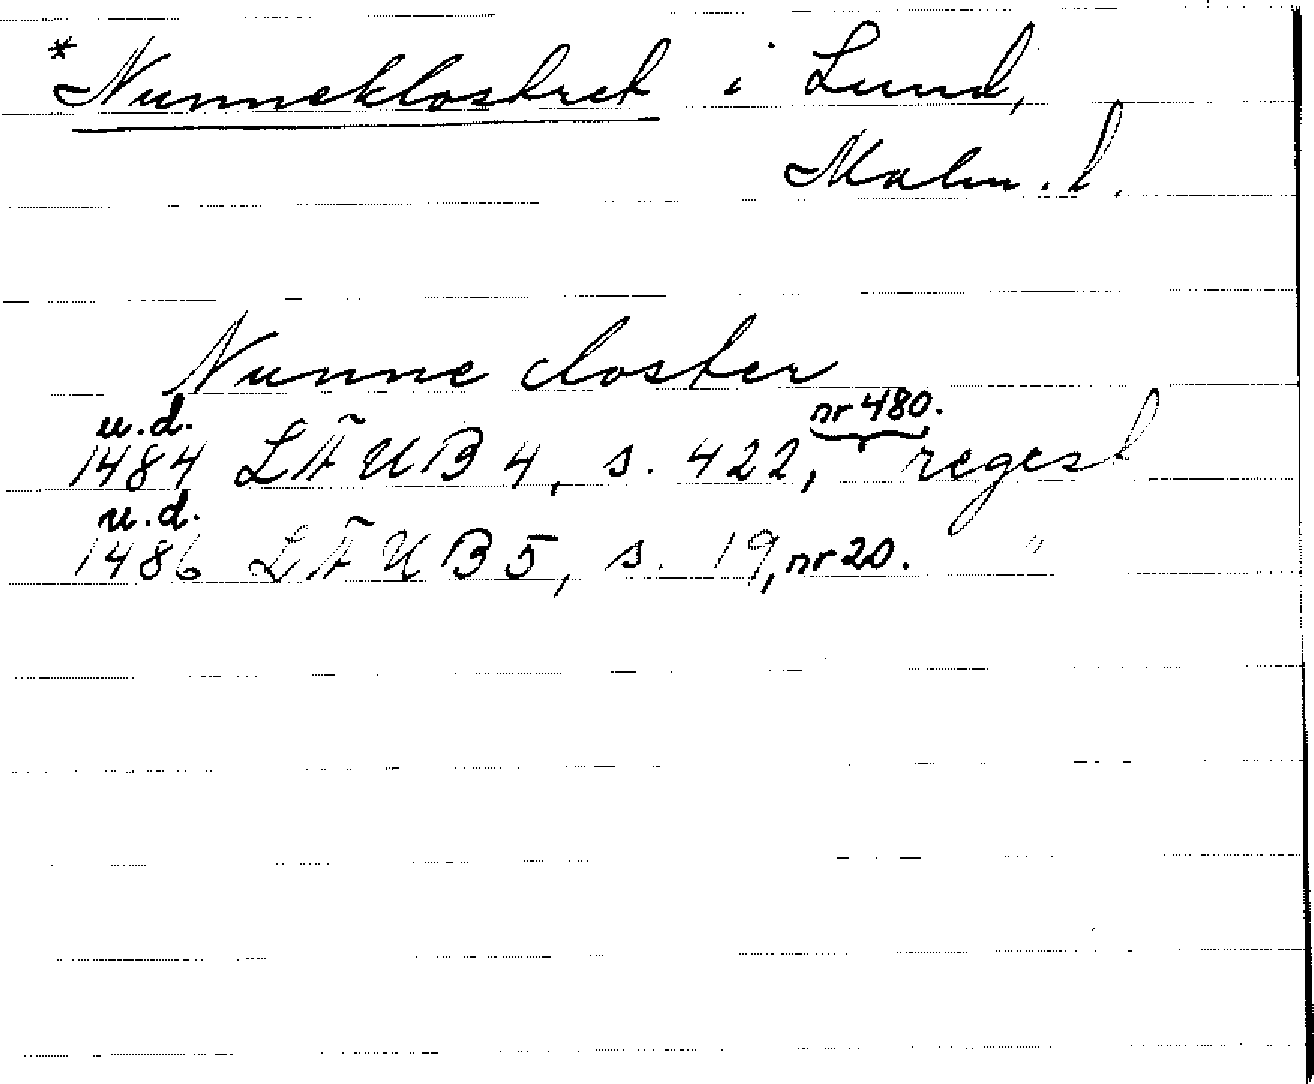 *Nunneklostret i Lund,
Malm. l.
Nunne closter
u.d.
1484 LÄUB 4, s. 422, nr 480. regest
u.d.
1486 LÄUB 5, s. 19, nr 20. "